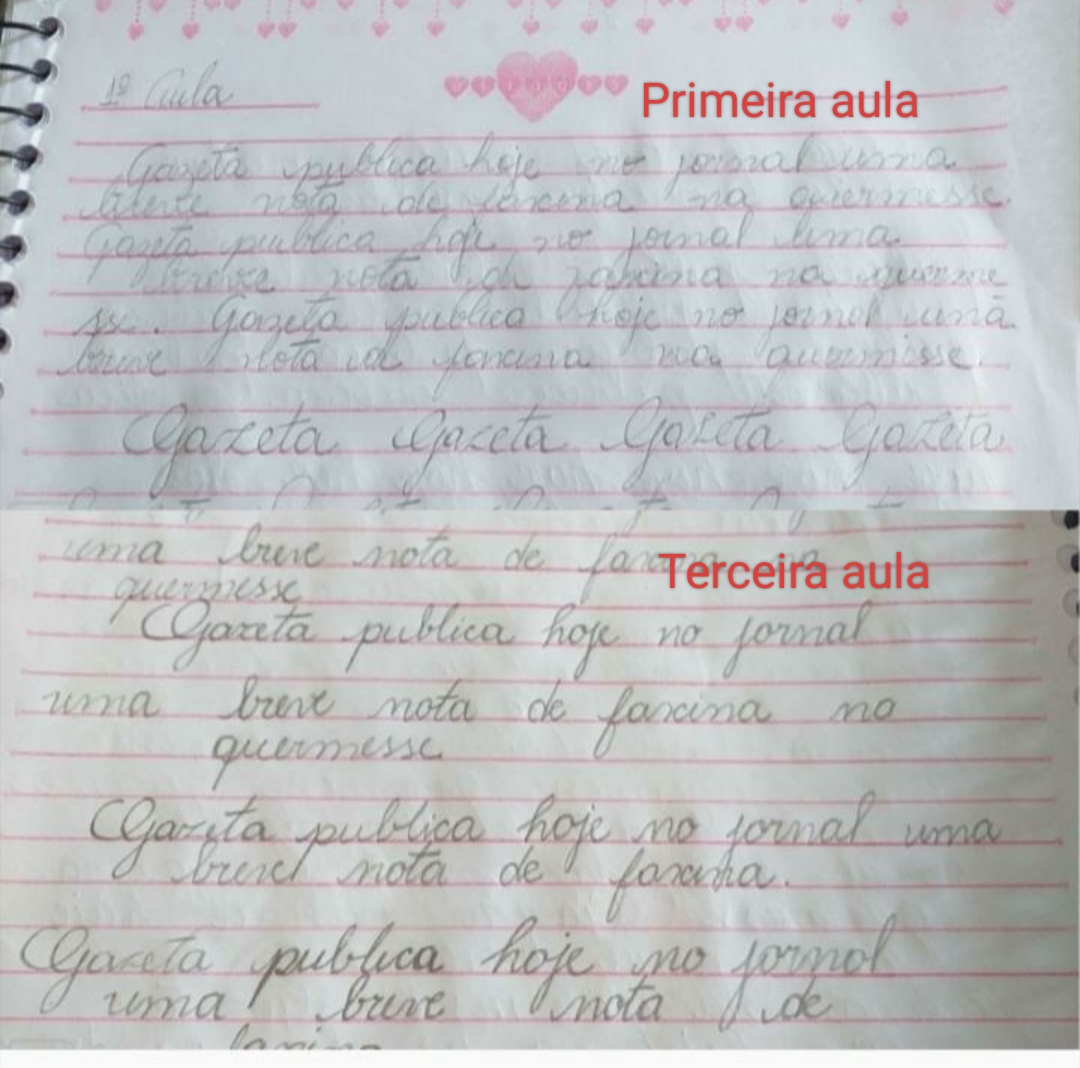 1º Aula
Primeira aula
Gazeta publica hoje no jornal uma
breve nota de faxina na quermesse.
Gazeta publica hoje no jornal uma
breve nota de faxina na querme
sse. Gazeta publica hoje no jornal uma
breve nota de faxina na quermisse.
Gazeta Gazeta Gazeta Gazeta
uma breve nota de faxina na
Terceira aula
quermesse
Gazeta publica hoje no jornal
uma breve nota de faxina no
quermesse
Gazeta publica hoje no jornal uma
breve nota de faxina.
Gazeta publica hoje no jornal
uma breve nota de
faxina